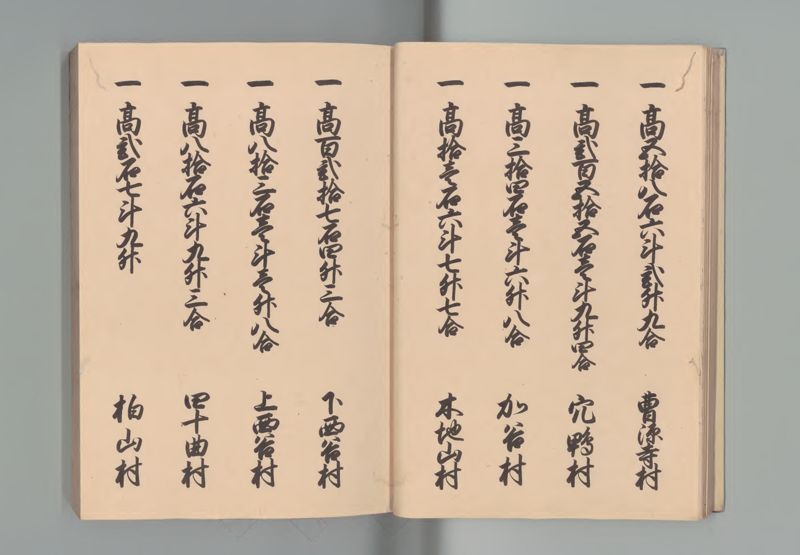 一 高五拾八石六斗弐升九合 曹源寺村
一 高弐百五拾五石壱斗九升四合 穴鴨村
一 高三拾四石壱斗六升八合 加谷村
一 高拾壱石六斗七升七合 木地山村
一 高百弐拾七石四升三合 下西谷村
一 高八拾三石壱斗壱升八合 上西谷村
一 高八拾石六斗九升三合 田十曲村
一 高弐石七斗九升 柏山村